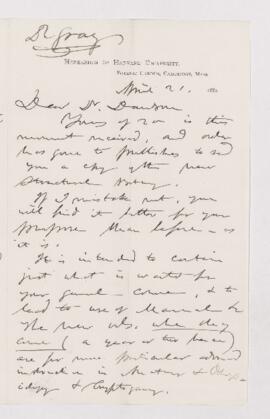 Dr Gray
HERBARIUM OF HARVARD UNIVERSITY,
BOTANIC GARDEN, CAMBRIDGE, MASS.
April 21. 1880
Dear Dr. Dawson
Yours of 20 is this
moment received, and order
has gone to publishers to send
you a copy of the new
Structural Botany.
If I mistake not, you
will find it better for your
purpose than before – as
it is.
It is intended to contain
just what is wanted for
your general course, & to
lead to use of Manual &
the new vols. when they
come (a year or two hence)
are for more particular advanced
instruction in &
&